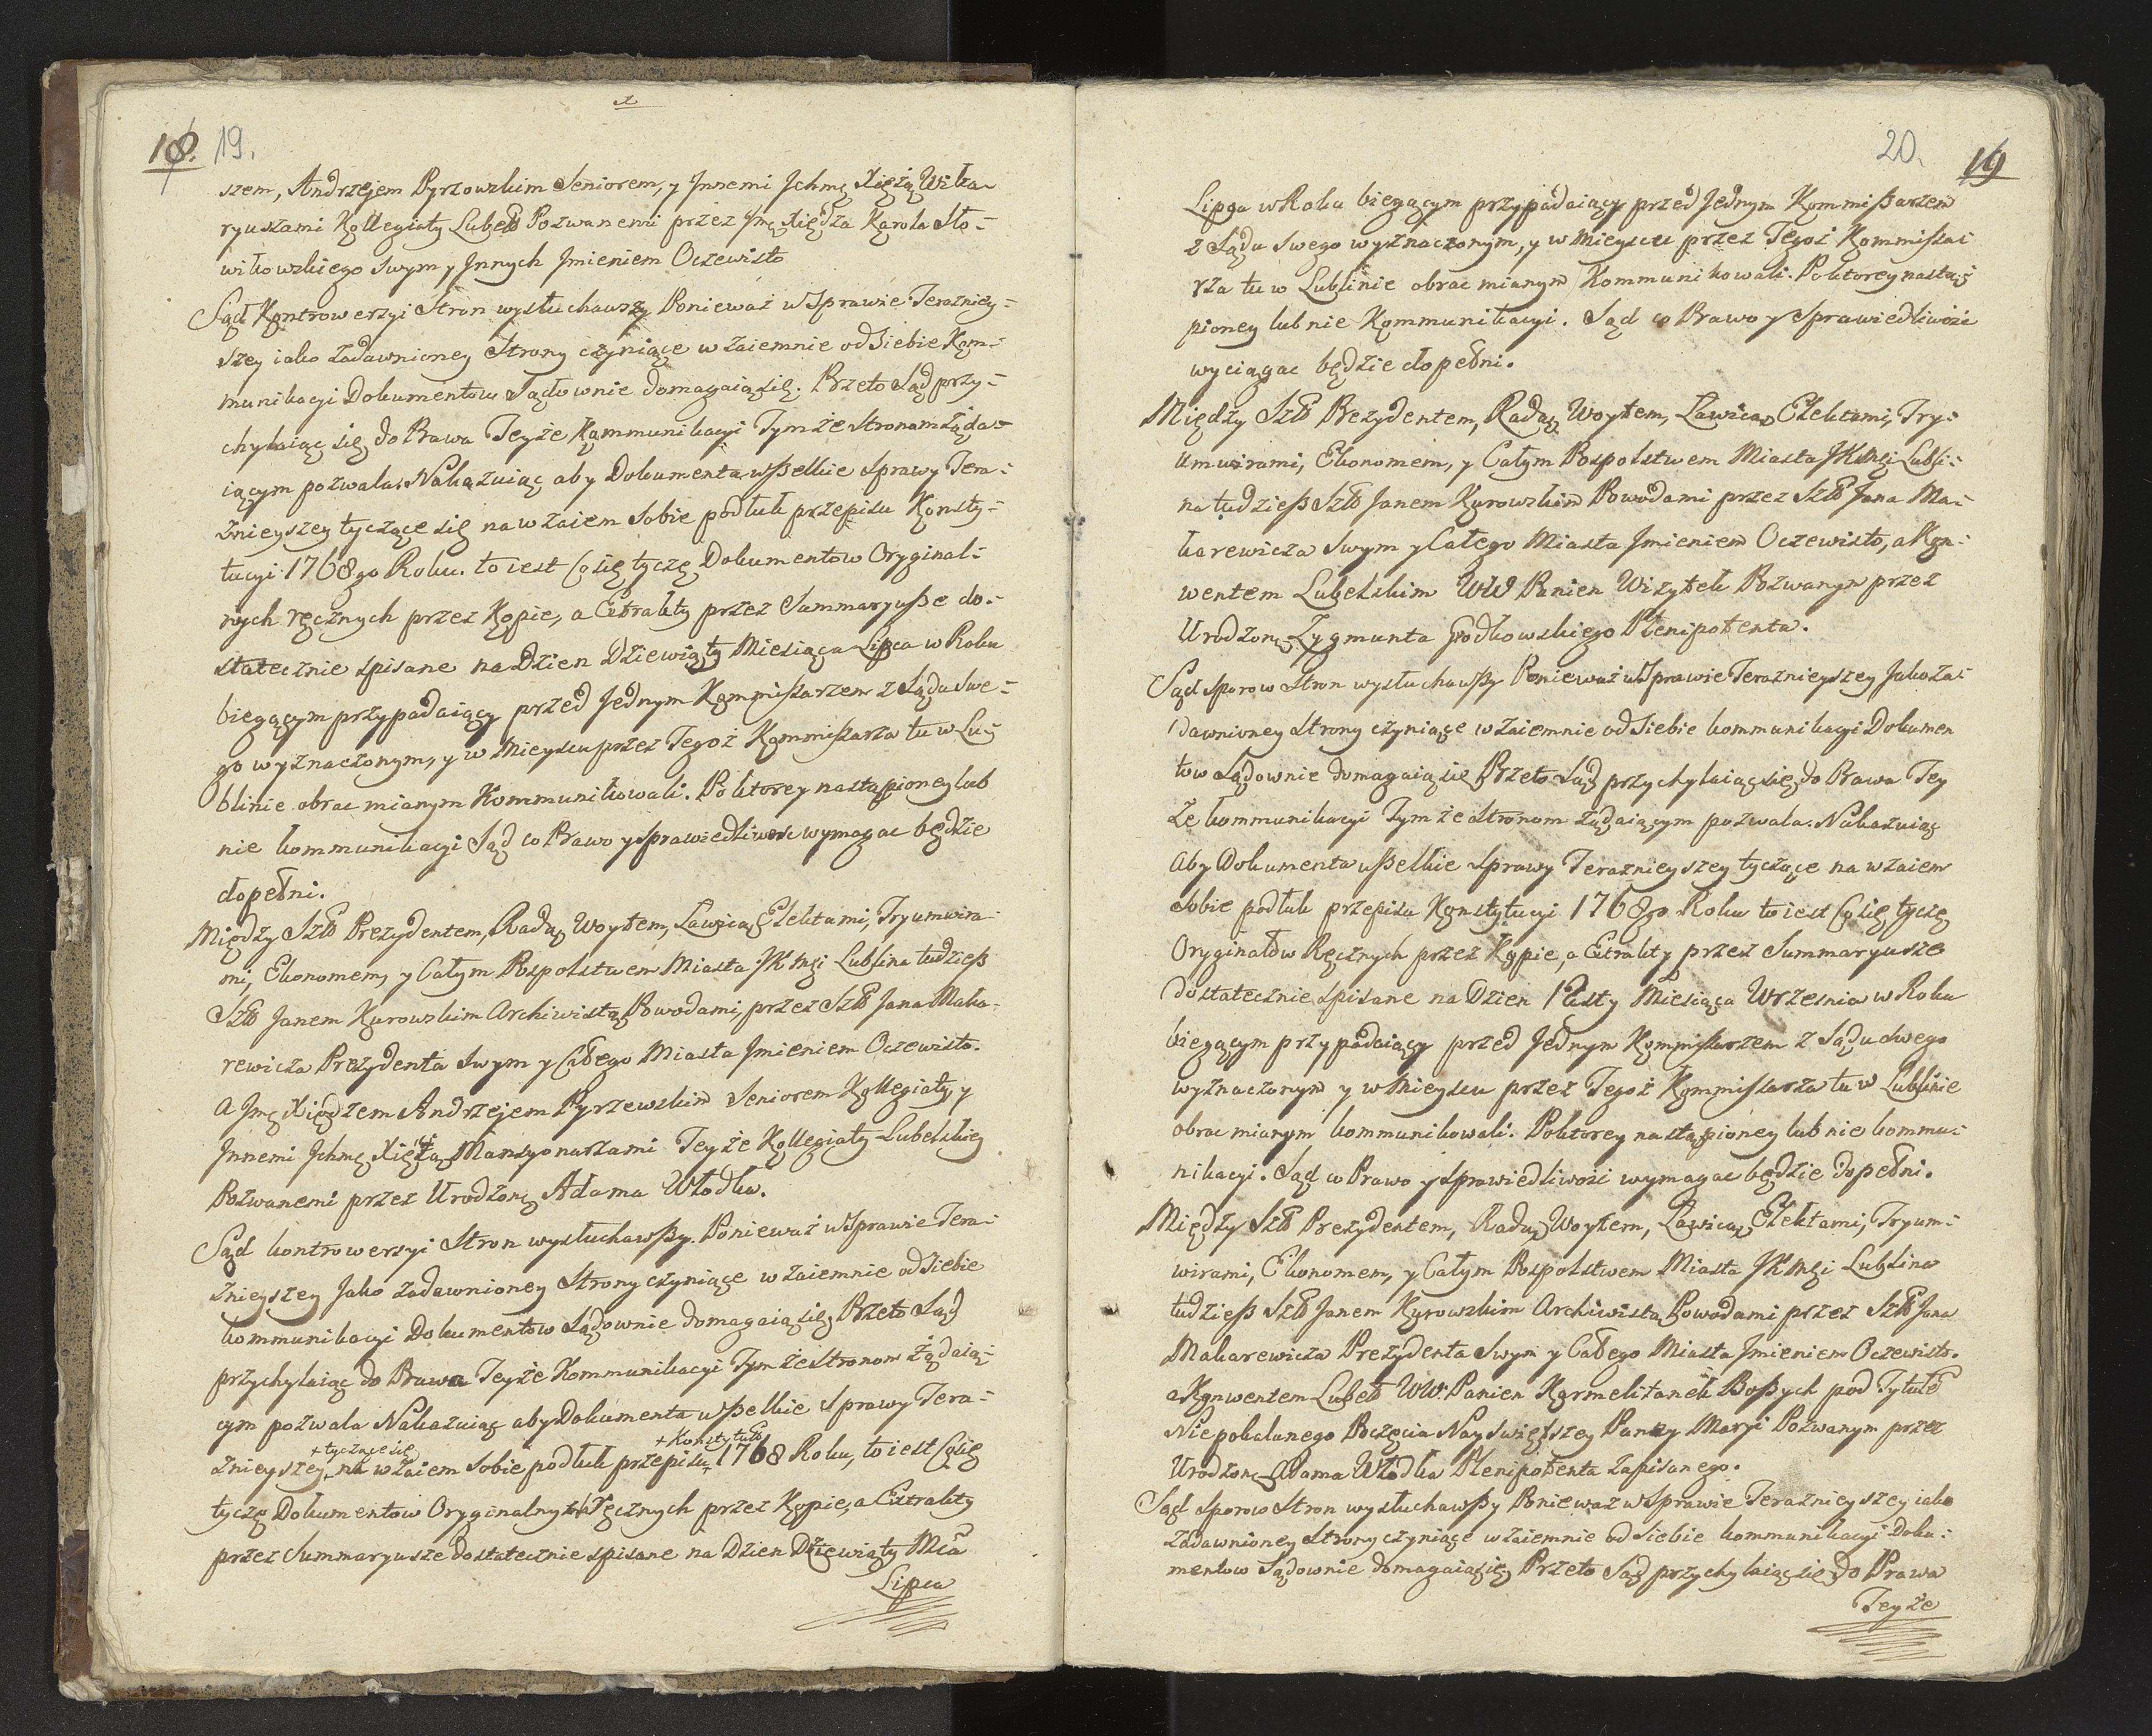 18. 19.
szem, Andrzejem Pyrzowskim Seniorem, y Jnnemi Jchmę Xiężą Wika-
ryuszami Kollegiaty Lubel Pozwanemi przez Jmę Xiędza Karola Sło-
witowskiego Swym y Jnnych Jmieniem Oczewisto
Sąd Kontrowersyi Stron wysłuchawszy Ponieważ w Sprawie Terazniey-
szey iako Zadawnioney Strony czyniące wzaiemnie od siebie Kom-
munikacyi Dokumentow Sądownie domagaią się. Przeto Sąd przy-
chylaiąc się do Prawa Teyże Kommunikacyi Tymże Stronom Żąda-
iącym pozwala. Nakazuiąc aby Dokumenta wszelkie Sprawy Tera-
znieyszey tyczące się nawzaiem Sobie podług przepisu Konsty-
tucyi 1768go Roku. to iest Co się tyczę Dokumentow Oryginal-
nych ręcznych przez Kopie, a Extrakty przez Summaryusze do-
statecznie spisane na Dzien Dziewiąty Miesiąca Lipca w Roku
biegącym przypadaiący przed Jednym Kommissarzem z Sądu Swe-
go wyznaczonym, y w Mieyscu przez Tegoż Kommissarza tu w Lu-
blinie obrac mianym Kommunikowali. Po ktorey nastąpioney lub
nie kommunikacyi Sąd co Prawo y Sprawiedliwosc wymagac będzie
dopełni.
Między Szl Prezydentem, Radą, Woytem, Ławicą, Elektami, Tryumwira-
mi, Ekonomem, y Całym Pospolstwem Miasta JKMci Lublina tudziesz
Szl Janem Kurowskim Archiwistą Powodami, przez Szl Jana Maka-
rewicza Prezydenta Swym y Całego Miasta Jmieniem Oczewisto.
a Jmę Xiędzem Andrzejem Pyrzewskim Seniorem Kollegiaty y
Jnnemi Jchmę Xiężą Mansyonarzami Teyże Kollegiaty Lubelskiey
Pozwanemi przez Urodzonę Adama Włodka.
Sąd kontrowersyi Stron wysłuchawszy. Ponieważ w Sprawie Tera-
znieyszey Jako zadawnioney Strony czyniące wzaiemnie od Siebie
kommunikacyi Dokumentow Sądownie domagaią się, Przeto Sąd
przychylaiąc do Prawa Teyże Kommunikacyi Tymże Stronom Żądaią-
cym pozwala Nakazuiąc aby Dokumenta wszelkie Sprawy Tera-
+ tyczące się + Konstytucyi
znieyszey, na wzaiem Sobie podług przepisu 1768 Roku, to iest Co się
tyczę Dokumentow Oryginalnych Ręcznych przez Kopie, a Extrakty
przez Summaryusze dostatecznie spisane na Dzien Dziewiąty Mca
Lipca
20. 19
Lipca w Roku biegącym przypadaiący przed Jednym Kommissarzem
z Sądu Swego wyznaczonym, y w Mieyscu przez Tegoż Kommissa-
rza tu w Lublinie obrac mianym Kommunikowali. Po ktorey nastą-
pioney lub nie Kommunikacyi. Sąd co Prawo y Sprawiedliwośc
wyciągac będzie dopełni.
Między Szl Prezydentem, Radą, Woytem, Ławicą, Elektami, Try-
umwirami, Ekonomem, y Całym Pospolstwem Miasta JKMci Lubli-
na tudziesz Szl Janem Kurowskim Powodami przez Szl Jana Ma-
karewicza Swym y Całego Miasta Jmieniem Oczewisto, a Kon-
wentem Lubelskim WW Panien Wizytek Pozwanym przez
Urodzonę Zygmunta Godkowskiego Plenipotenta.
Sąd sporow Stron wysłuchawszy Ponieważ w Sprawie Teraznieyszey Jako za-
dawnioney Strony czyniące wzaiemnie od Siebie kommunikacyi Dokumen
tow Sądownie domagaią się Przeto Sąd przychylaiąc się do Prawa Tey
że kommunikacyi Tymże Stronom żądaiącym pozwala. Nakazuiąc
aby Dokumenta wszelkie Sprawy Teraznieyszey tyczące na wzaiem
Sobie podług przepisu Konstytucyi 1768go Roku to iest Co się tyczę
Oryginałow Ręcznych przez Kopie, a Extrakty przez Summaryusze
dostatecznie spisane na Dzien 1 Miesiąca Wrzesnia w Roku
biegącym przypadaiący przed Jednym Kommissarzem z Sądu Swego
wyznaczonym y w Mieyscu przez Tegoż Kommissarza tu w Lublinie
obrac mianym kommunikowali. Po ktorey nastąpioney lub nie kommu-
nikacyi. Sąd co Prawo y Sprawiedliwości wymagac będzie dopełni.
Między Szl Prezydentem, Radą, Woytem, Ławicą, Elektami, Tryum-
wirami, Ekonomem, y Całym Pospolstwem Miasta JKMci Lublina
tudziesz Szl Janem Kurowskim Archiwistą Powodami przez Szl Jana
Makarewicza Prezydenta Swym y Całego Miasta Jmieniem Oczewisto.
a Konwentem Lubel WW. Panien Karmelitanek Bossych pod Tytułe
Niepokalanego Poczęcia Nayswiętszey Panny Maryi Pozwanym przez
Urodzonę Adama Włodka Plenipotenta zapisanego.
Sąd sporow Stron wysłuchawszy Ponieważ w Sprawie Teraznieyszey iako
zadawnioney Strony czyniące wzaiemnie od Siebie kommunikacyi Doku-
mentow Sądownie domagaią się, Przeto Sąd przychylaiąc się do Prawa
Teyże